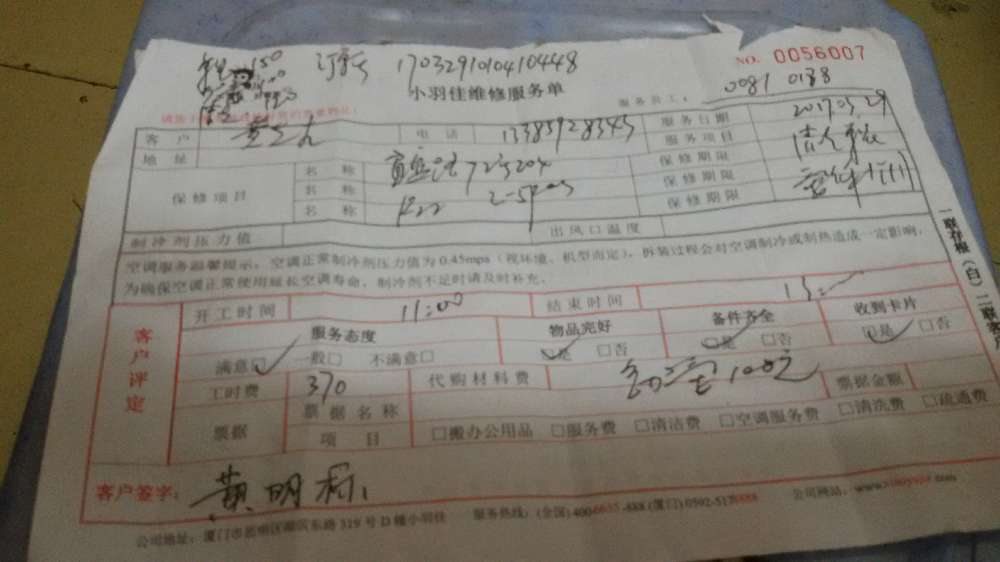 170329101041048
NO. 0056007
小羽佳维修服务单
服务员工: 0081 0138
客户 电话 服务日期 2017.03.29
地址 服务项目
保修项目 名称 72号204 保修期限
名称 R22 保修期限
名称 保修期限
制冷剂压力值 出风口温度
空调服务温馨提示:空调正常制冷剂压力值为0.45mpa(视环境、机型而定),拆装过程会对空调制冷或制热造成一定影响,
为确保空调正常使用延长空调寿命,制冷剂不足时请及时补充。
一联存根(白)二联客户
开工时间 11:00 结束时间
客户评定
服务态度 物品完好 备件齐全 收到卡片
满意□ 一般□ 不满意□ □是 □否 □是 □否 □是 □否
工时费 370 代购材料费 100元 票据金额
票据 票据名称
项目 □搬办公用品 □服务费 □清洁费 □空调服务费 □清洗费 □疏通费
客户签字: 黄明标
公司地址:厦门市思明区湖滨东路319号D幢小羽佳 服务热线:(全国)400-6655-888(厦门)0592-5178888 公司网站: